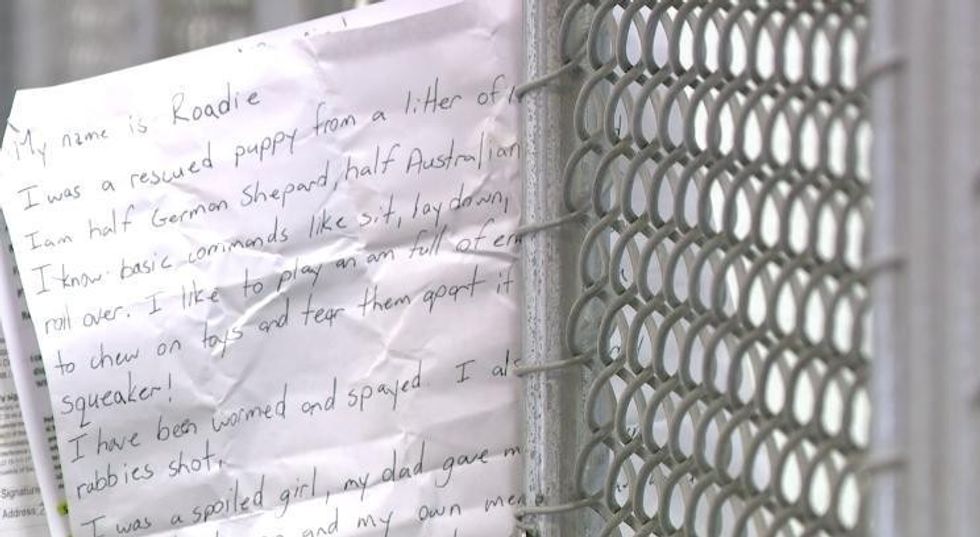 My name is Roadie
I was a rescued puppy from a litter of
I am half German Shepard, half Australian
I know basic commands like sit, lay down,
roll over. I like to play an am full of en
to chew on toys and tear them apart it
squeaker!
I have been wormed and spayed. I al
rabbies shot,
I was a spoiled girl, my dad gave m
and my own
Signature
Address